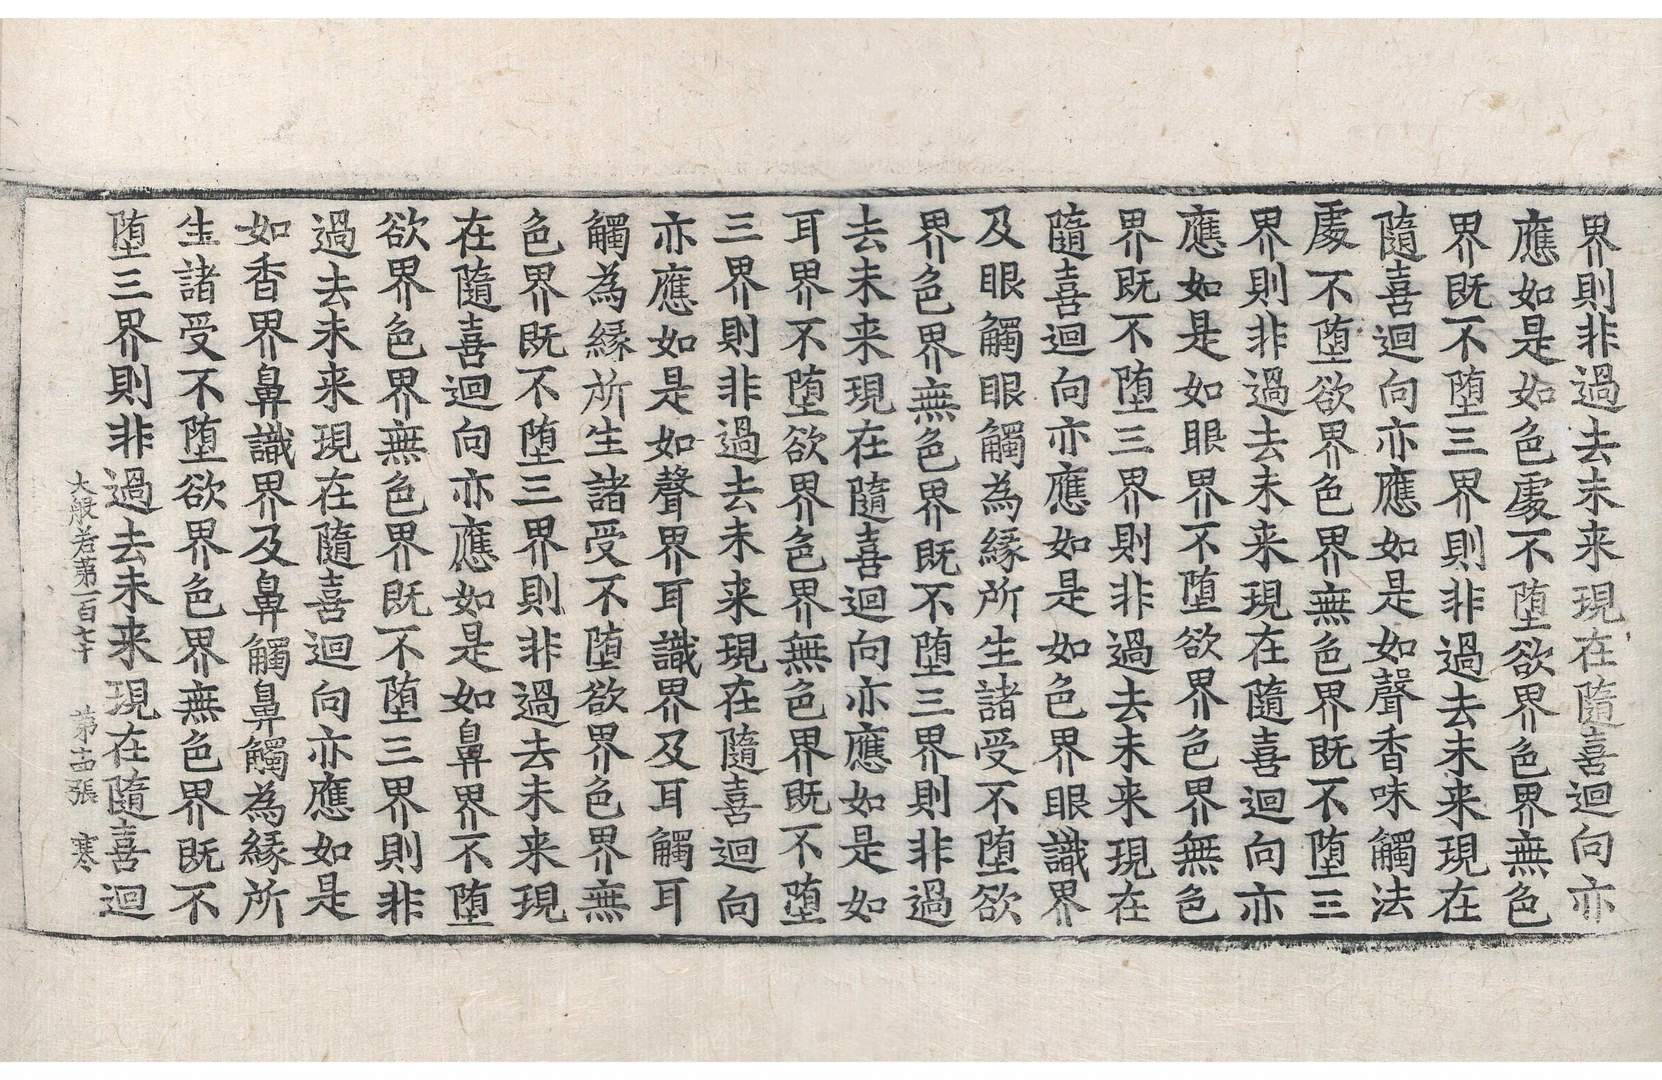 界則非過去未来現在隨喜迴向亦
應如是如色處不堕欲界色界無色
界既不堕三界則非過去未来現在
隨喜迴向亦應如是如聲香味觸法
處不堕欲界色界無色界既不堕三
界則非過去未来現在隨喜迴向亦
應如是如眼界不堕欲界色界無色
界既不堕三界則非過去未来現在
隨喜迴向亦應如是如色界眼識界
及眼觸眼觸為緣所生諸受不堕欲
界色界無色界既不堕三界則非過
去未来現在隨喜迴向亦應如是如
耳界不堕欲界色界無色界既不堕
三界則非過去未来現在隨喜迴向
亦應如是如聲界耳識界及耳觸耳
觸為緣所生諸受不堕欲界色界無
色界既不堕三界則非過去未来現
在隨喜迴向亦應如是如鼻界不堕
欲界色界無色界既不堕三界則非
過去未来現在隨喜迴向亦應如是
如香界鼻識界及鼻觸鼻觸為緣所
生諸受不堕欲界色界無色界既不
堕三界則非過去未来現在隨喜迴
大般若第一百七十 第十五張 寒